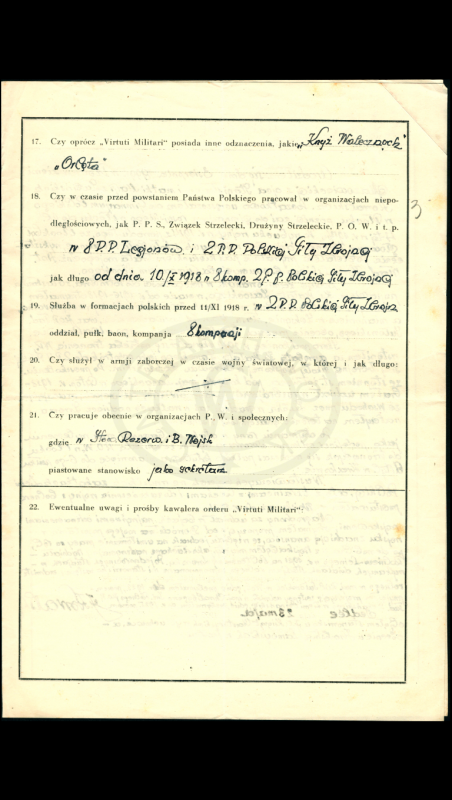 17. Czy oprócz „Virtuti Militari" posiada inne odznaczenia, jakie „Krzyż Walecznych"
„Orlęta"
18. Czy w czasie przed powstaniem Państwa Polskiego pracował w organizacjach niepo-
dległościowych, jak P. P. S., Związek Strzelecki, Drużyny Strzeleckie, P. O. W. i t. p.
w 8 P.P. Legjonów i 2 P.P. Polskiej Siły Zbrojnej
jak długo od dnia 10/X 1918 w 8 komp. 2 p. p. Polskiej Siły Zbrojnej
19. Służba w formacjach polskich przed 11/XI 1918 r. w 2 P.P. Polskiej Siły Zbrojn
oddział, pułk, baon, kompanja 8 kompanji
20. Czy służył w armji zaborczej w czasie wojny światowej, w której i jak długo:
21. Czy pracuje obecnie w organizacjach P. W. i społecznych:
gdzie w Stow. Rezerw. i B. Wojsk
piastowane stanowisko jako sekretarz
22. Ewentualne uwagi i prośby kawalera orderu „Virtuti Militari":
3